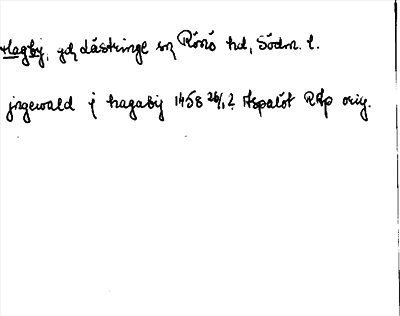 Hagby, gd, Lästringe sn, Rönö hd, Södm. l.
jngewald j hagaby 1458 26/12 Aspalöt RAp orig.